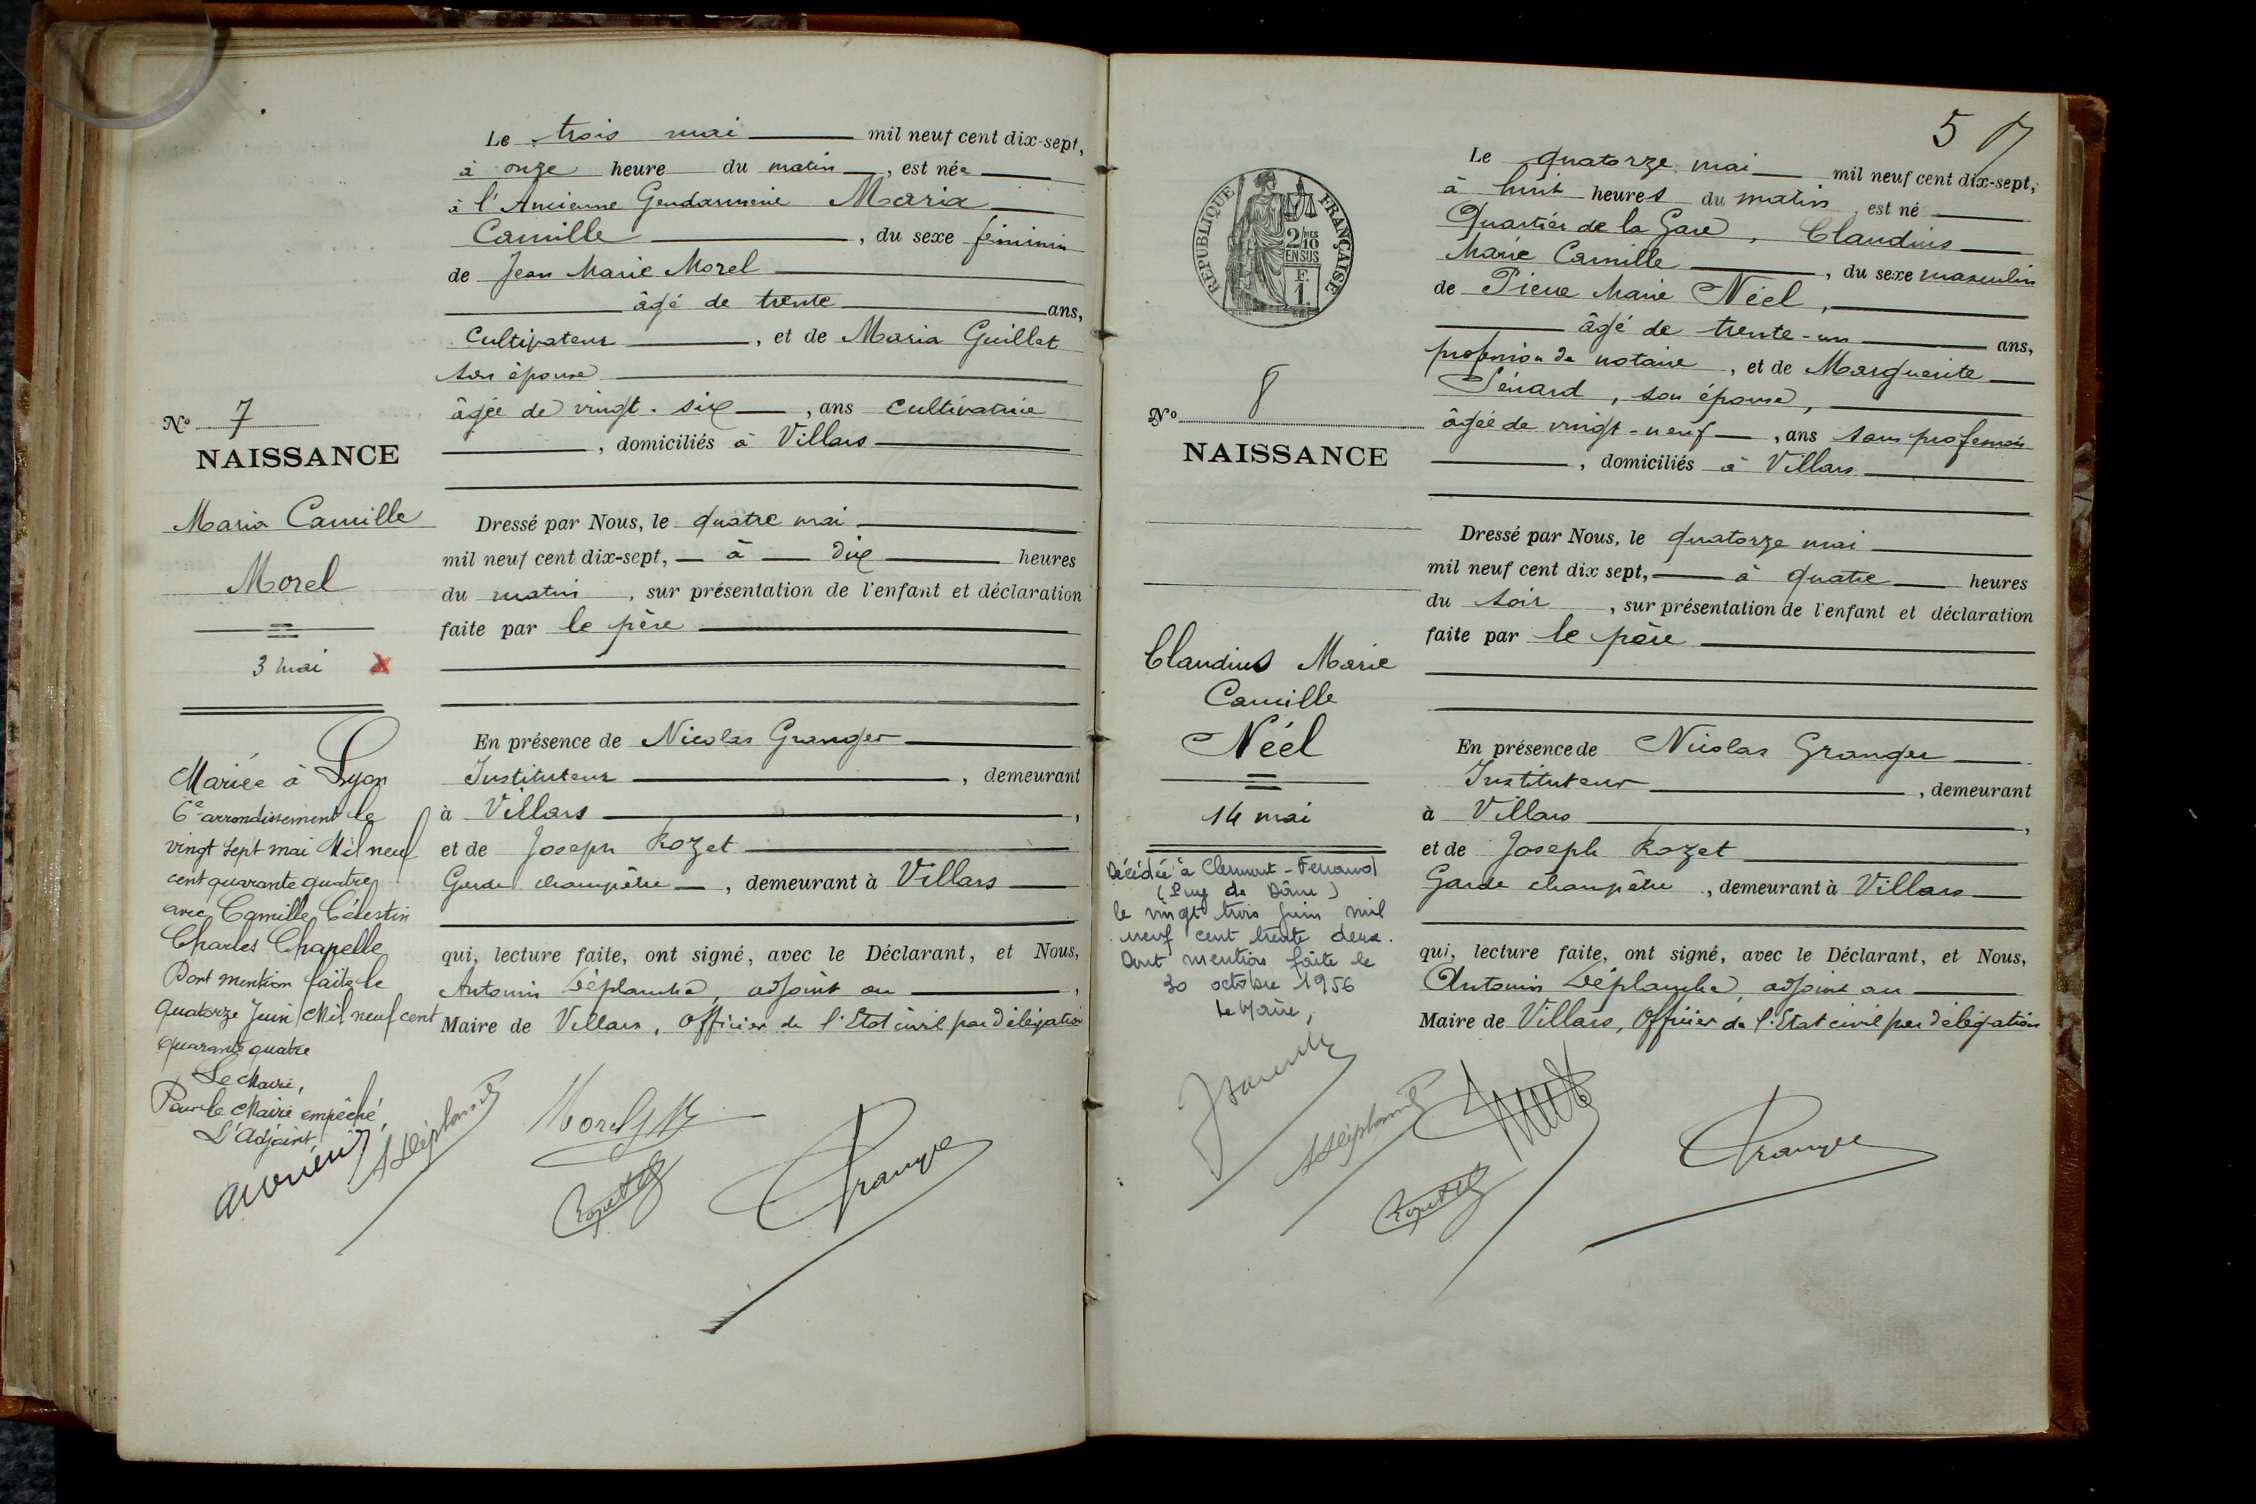 Le trois mai mil neuf cent dix-sept,
à onze heure du matin, est née
à l'Ancienne Gendarmerie Maria
Camille, du sexe féminin
de Jean Marie Morel
âgé de trente ans,
cultivateur, et de Maria Guillet
son épouse
âgée de vingt-six, ans cultivatrice
, domiciliés à Villars
Nº 7
NAISSANCE
Maria Camille
Morel
3 mai X
Dressé par Nous, le quatre mai
mil neuf cent dix-sept, à dix heures
du matin, sur présentation de l'enfant et déclaration
faite par le père
En présence de Nicolas Granger
Instituteur, demeurant
à Villars,
et de Joseph Rozet
Garde champêtre, demeurant à Villars
qui, lecture faite, ont signé, avec le Déclarant, et Nous,
Antonin Déplanche, adjoint au,
Maire de Villars, Officier de l'Etat civil par délégation
Mariée à Lyon
6e arrondissement le
vingt sept mai Mil neuf
cent quarante quatre
avec Camille Célestin
Charles Chapelle
Dont mention faite le
quatorze Juin Mil neuf cent
quarante quatre
Le Maire,
Pour le Maire empêché,
L'Adjoint
ADéplanche
Morel JM
Rozet
Granger
5
RÉPUBLIQUE FRANÇAISE
2/10 MES
EN SUS
F.
1.
Le quatorze mai mil neuf cent dix-sept,
à huit heures du matin est né
Quartier de la Gare, Claudius
Marie Camille, du sexe masculin
de Pierre Marie Néel,
âgé de trente-un ans,
profession de notaire, et de Marguerite
Sénard, son épouse,
âgée de vingt-neuf, ans sans profession
, domiciliés à Villars
Nº 8
NAISSANCE
Claudius Marie
Camille
Néel
14 mai
Dressé par Nous, le quatorze mai
mil neuf cent dix sept, à quatre heures
du soir, sur présentation de l'enfant et déclaration
faite par le père
En présence de Nicolas Granger
Instituteur, demeurant
à Villars,
et de Joseph Rozet
Garde champêtre, demeurant à Villars
qui, lecture faite, ont signé, avec le Déclarant, et Nous,
Antonin Déplanche, adjoint au
Maire de Villars, Officier de l'Etat civil par délégation
Décédé à Clermont-Ferrand
(Puy de Dôme)
le vingt trois juin mil
neuf cent trente deux.
Dont mention faite le
30 octobre 1956
Le Maire,
ADéplanche
Rozet
Granger